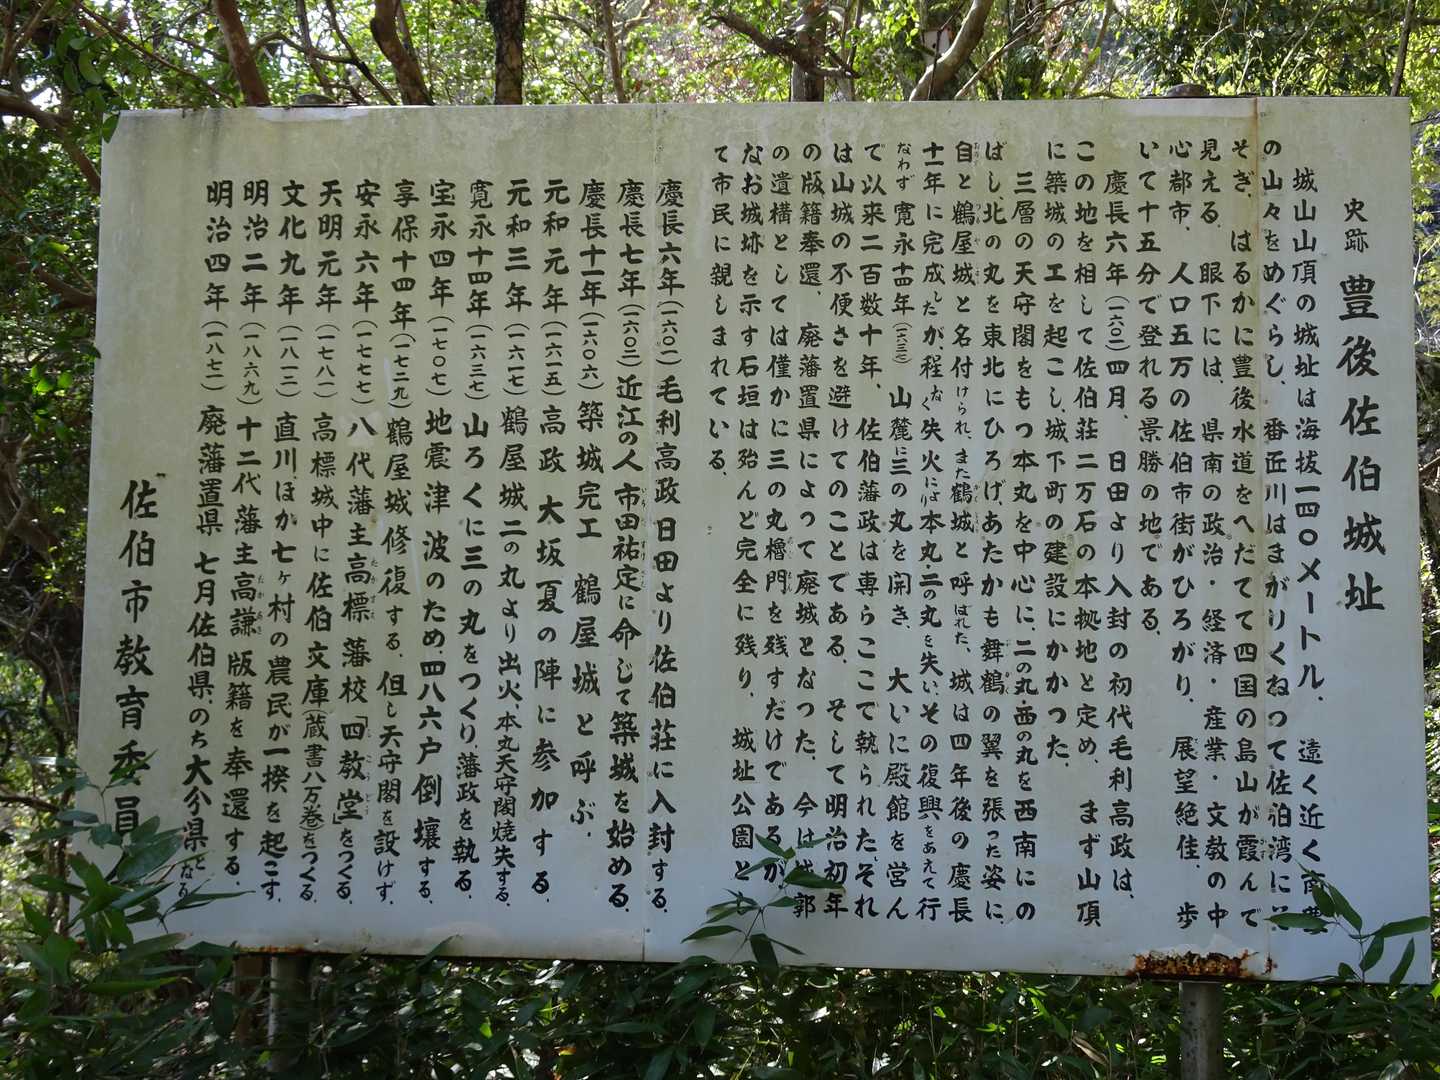 史跡 豊後佐伯城址
城山山頂の城址は海抜一四〇メートル、遠く近く南豊
の山々をめぐらし、番匠川はまがりくねって佐泊湾にそ
そぎ、はるかに豊後水道をへだてて四国の島山が霞んで
見える。眼下には、県南の政治・経済・産業・文教の中
心都市、人口五万の佐伯市街がひろがり、展望絶佳、歩
いて十五分で登れる景勝の地である。
慶長六年(一六〇一)四月、日田より入封の初代毛利高政は、
この地を相して佐伯荘二万石の本拠地と定め、まず山頂
に築城の工を起こし、城下町の建設にかかった。
三層の天守閣をもつ本丸を中心に、二の丸・西の丸を西南にの
ばし、北の丸を東北にひろげ、あたかも舞鶴の翼を張った姿に、
自と鶴屋城と名付けられ、また鶴城と呼ばれた。城は四年後の慶長
十一年に完成したが、程なく失火により本丸・二の丸を失い、その復興をあえて行
なわず 寛永十四年(一六三七)山麓に三の丸を開き、大いに殿館を営ん
で以来二百数十年、佐伯藩政は専らここで執られた。それ
は山城の不便さを避けてのことである。そして明治初年
の版籍奉還、廃藩置県によって廃城となった。今は城郭
の遺構としては僅かに三の丸櫓門を残すだけであるが、
なお城跡を示す石垣は殆んど完全に残り、城址公園と
て市民に親しまれている。
慶長六年(一六〇一)毛利高政日田より佐伯荘に入封する。
慶長七年(一六〇二)近江の人市田祐定に命じて築城を始める。
慶長十一年(一六〇六)築城完工 鶴屋城と呼ぶ。
元和元年(一六一五)高政 大坂夏の陣に参加する。
元和三年(一六一七)鶴屋城二の丸より出火、本丸天守閣焼失する。
寛永十四年(一六三七)山ろくに三の丸をつくり、藩政を執る。
宝永四年(一七〇七)地震津波のため、四八六戸倒壊する。
享保十四年(一七二九)鶴屋城修復する、但し天守閣を設けず。
安永六年(一七七七)八代藩主高標 藩校「四教堂」をつくる。
天明元年(一七八一)高標城中に佐伯文庫(蔵書八万巻)をつくる。
文化九年(一八一二)直川、ほか七ヶ村の農民が一揆を起こす。
明治二年(一八六九)十二代藩主高謙 版籍を奉還する。
明治四年(一八七一)廃藩置県 七月佐伯県、のち大分県となる
佐伯市教育委員